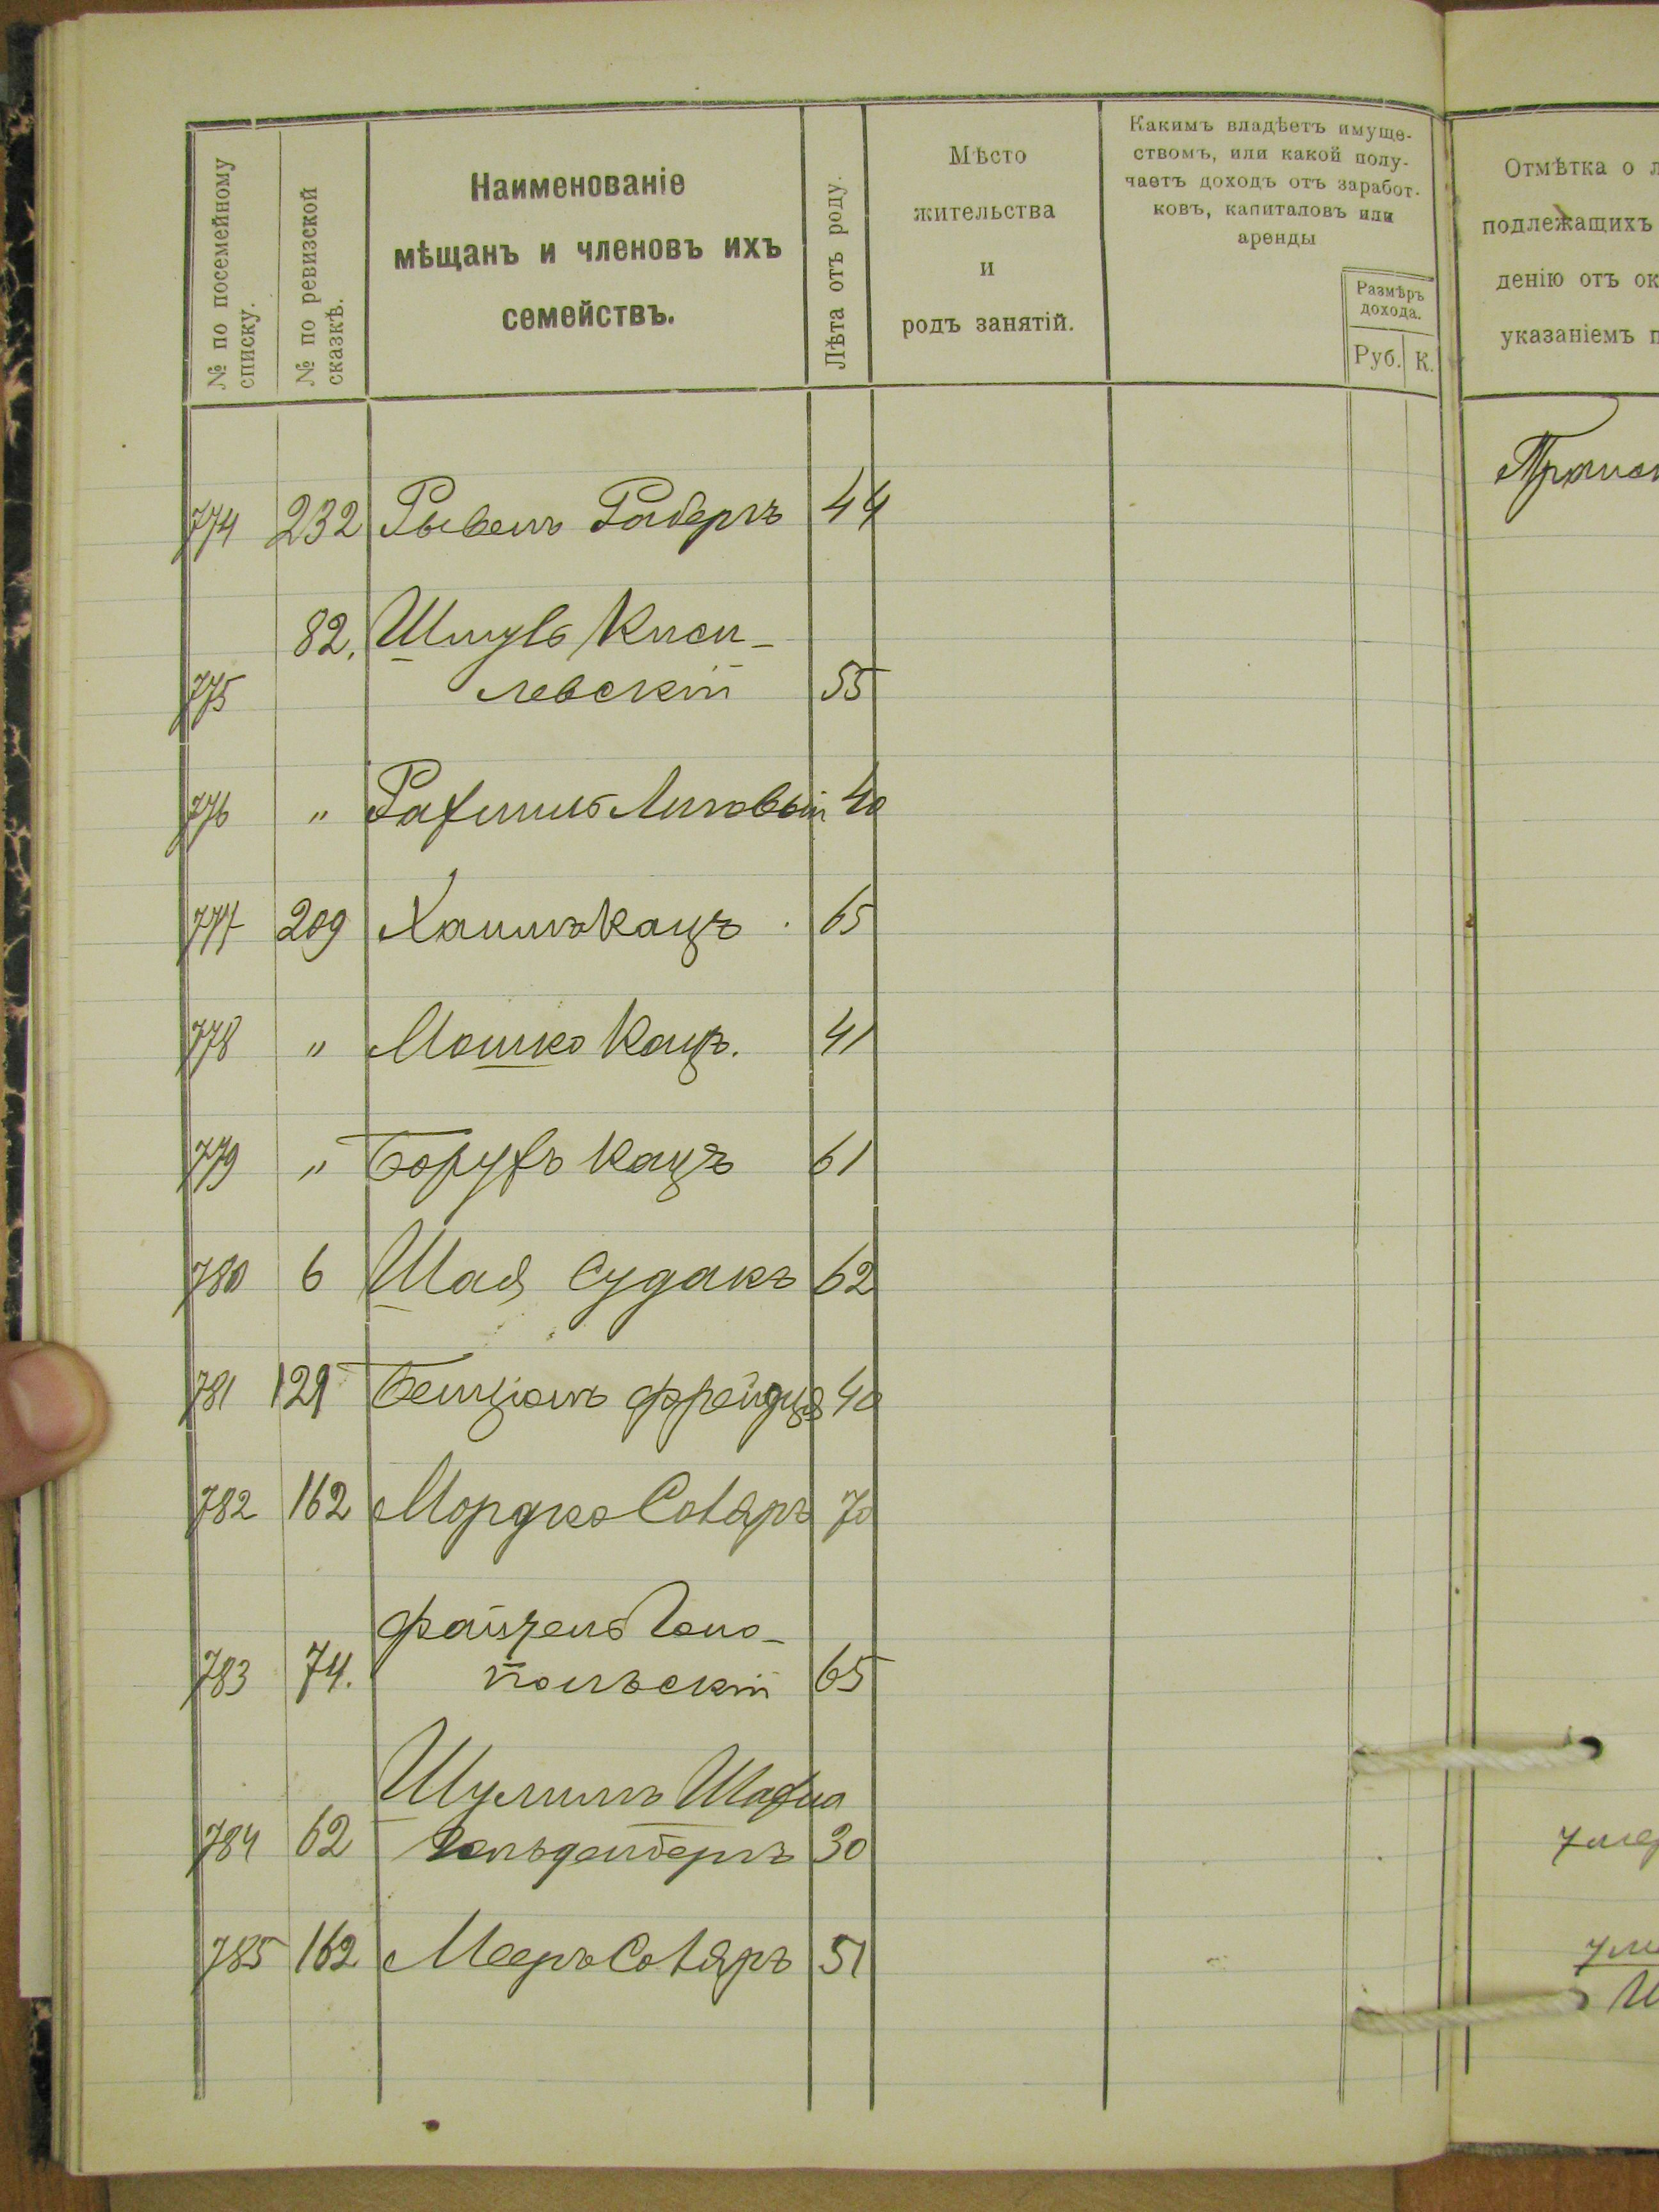 № по посемейному
списку.
№ по ревизской
сказкѣ.
Наименованіе
мѣщанъ и членовъ ихъ
семействъ.
Лѣта отъ роду.
Мѣсто
жительства
и
родъ занятій.
Какимъ владѣетъ имуще-
ствомъ, или какой полу-
чаетъ доходъ отъ заработ-
ковъ, капиталовъ или
аренды
Размѣръ
дохода.
Руб. К.
Отмѣтка о
подлежащихъ
денію отъ ок
указаніемъ п
774 232 44
82. Шмуль Киси-
775 левскій 55
776 " Рахмиль Липовый 40
777 209 Хаимъ Кацъ 65
778 " Мошко Кацъ. 41
779 " Борухъ Кацъ 61
780 6 Шая Судакъ 62
781 129 Бенціонъ 40
782 162 Мордко Сотяръ 70
74. Файзель Гоно-
783 польскій 65
Шулимъ
784 62 Гольденбергъ 30
785 162 Мееръ Сотяръ 51
умер